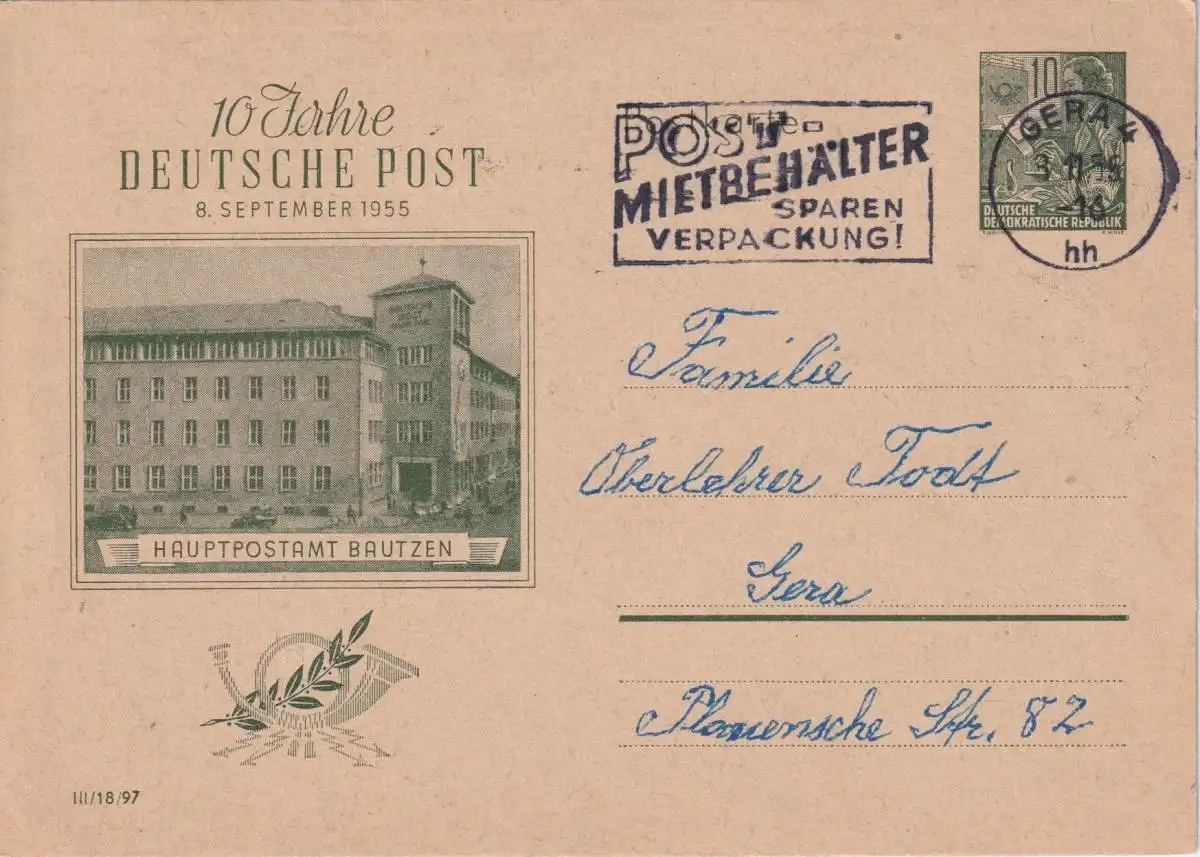 10 Jahre
DEUTSCHE POST
8. SEPTEMBER 1955
HAUPTPOSTAMT BAUTZEN
III/18/97
Postkarte
POST-
MIETBEHÄLTER
SPAREN
VERPACKUNG!
10
DEUTSCHE
DEMOKRATISCHE REPUBLIK
GERA 4
hh
Familie
Oberlehrer Todt
Gera
Plauensche Str. 82